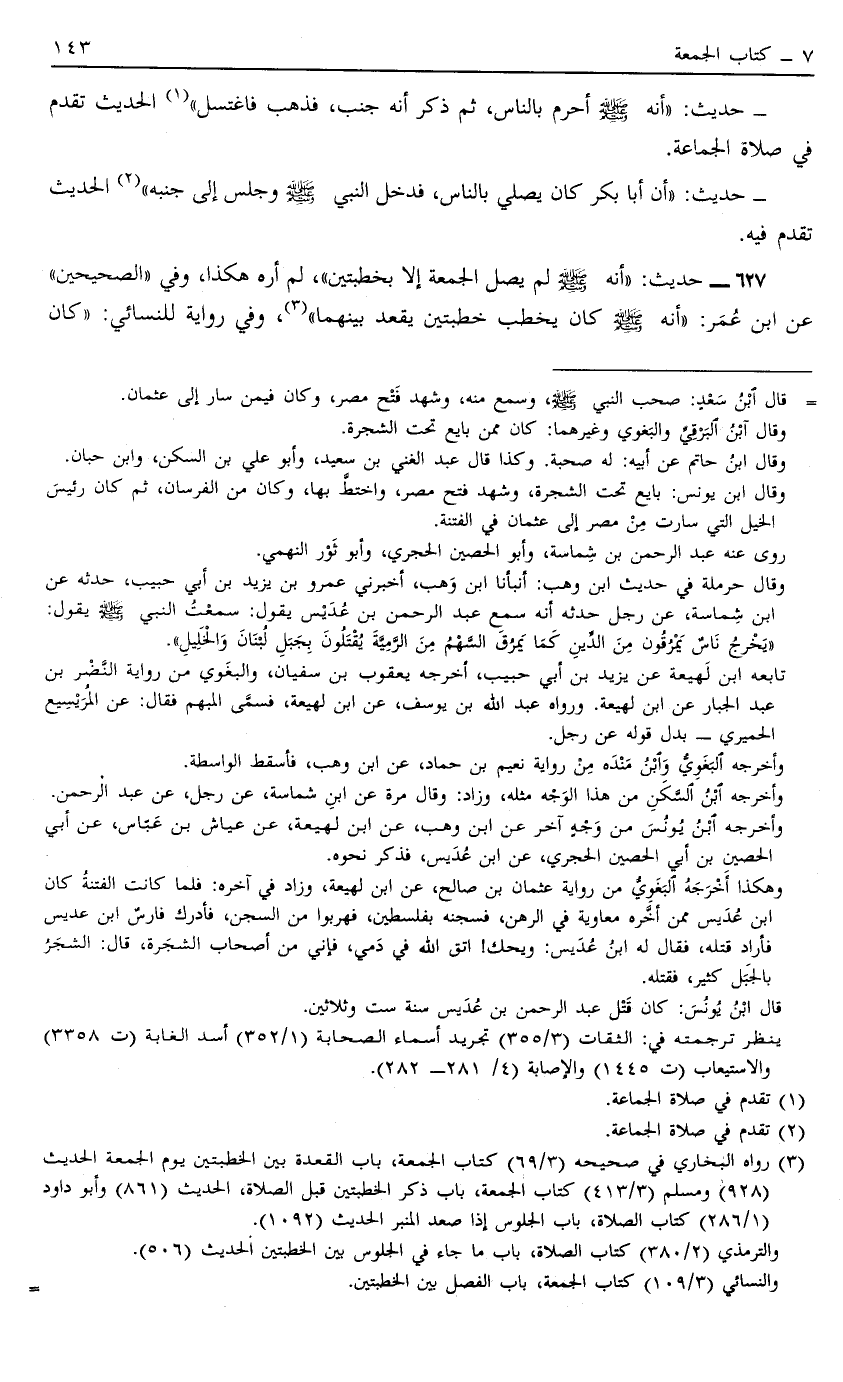 ٧ ـ كتاب الجمعة
١٤٣
ـ حديث: «أنه ﷺ أحرم بالناس، ثم ذكر أنه جنب، فذهب فاغتسل»(١) الحديث تقدم
في صلاة الجماعة.
ـ حديث: «أن أبا بكر كان يصلي بالناس، فدخل النبي ﷺ وجلس إلى جنبه»(٢) الحديث
تقدم فيه.
٦٢٧ ـ حديث: «أنه ﷺ لم يصل الجمعة إلا بخطبتين»، لم أره هكذا، وفي «الصحيحين»
عن ابن عُمَر: «أنه ﷺ كان يخطب خطبتين يقعد بينهما»(٣)، وفي رواية للنسائي: «كان
= قال ٱبْنُ سَعْدٍ: صحب النبي ﷺ، وسمع منه، وشهد فَتْح مصر، وكان فيمن سار إلى عثمان.
وقال ٱبْنُ ٱلبَرْقِيِّ والبَغوي وغيرهما: كان ممن بايع تحت الشجرة.
وقال ابنُ حاتم عن أبيه: له صحبة. وكذا قال عبد الغني بن سعيد، وأبو علي بن السكن، وابن حبان.
وقال ابن يونس: بايع تحت الشجرة، وشهد فتح مصر، واختطَّ بها، وكان من الفرسان، ثم كان رئيسَ
الخيل التي سارت مِنْ مصر إلى عثمان في الفتنة.
روى عنه عبد الرحمن بن شِماسة، وأبو الحصين الحجري، وأبو ثَوْر النهمي.
وقال حرملة في حديث ابن وهب: أنبأنا ابن وَهب، أخبرني عمرو بن يزيد بن أبي حبيب، حدثه عن
ابن شِماسة، عن رجل حدثه أنه سمع عبد الرحمن بن عُدَيْس يقول: سمعْتُ النبي ﷺ يقول:
«يَخْرجُ نَاسٌ يَمْرُقُون مِنَ الدِّينِ كَمَا يَمرُقَ السَّهْمُ مِنَ الرَّمِيَّةَ يُقْتَلُونَ بِجَبَلِ لُبْنَانَ وَالْخَلِيلِ».
تابعه ابن لَهيعة عن يزيد بن أبي حبيب، أخرجه يعقوب بن سفيان، والبغَوي من رواية النَّضْر بن
عبد الجبار عن ابن لهيعة. ورواه عبد الله بن يوسف، عن ابن لهيعة، فسمَّى المبهم فقال: عن المُرَيْسِيع
الحميري ـ بدل قوله عن رجل.
وأخرجه ٱلبَغَوِيُّ وَٱبْنُ مَنْدَه مِنْ رواية نعيم بن حماد، عن ابن وهب، فأسقط الواسطة.
وأخرجه ٱبْنُ ٱلسَّكَنِ من هذا الوَجْه مثله، وزاد: وقال مرة عن ابنِ شماسة، عن رجل، عن عبد الرحمن.
وأخرجه ٱبْنُ يُونُسَ من وَجْهٍ آخر عن ابن وهب، عن ابن لهيعة، عن عياش بن عَبّاس، عن أبي
الحصين بن أبي الحصين الحجري، عن ابن عُدَيس، فذكر نحوه.
وهكذا أَخْرَجَهُ ٱلبَغَوِيُّ من رواية عثمان بن صالح، عن ابن لهيعة، وزاد في آخره: فلما كانت الفتنةُ كان
ابن عُدَيس ممن أخَّره معاوية في الرهن، فسجنه بفلسطين، فهربوا من السجن، فأدرك فارسٌ ابن عديس
فأراد قتله، فقال له ابنُ عُدَيس: ويحك! اتق الله في دَمي، فإني من أصحاب الشجَرة، قال: الشجَرُ
بالجَبَل كثير، فقتله.
قال ابْنُ يُونُسَ: كان قَتْل عبد الرحمن بن عُدَيس سنة ست وثلاثين.
ينظر ترجمته في: الثقات (٣٥٥/٣) تجريد أسماء الصحابة (٣٥٢/١) أسد الغابة (ت ٣٣٥٨)
والاستيعاب (ت ١٤٤٥) والإصابة (٤/ ٢٨١ـ ٢٨٢).
(١) تقدم في صلاة الجماعة.
(٢) تقدم في صلاة الجماعة.
(٣) رواه البخاري في صحيحه (٦٩/٣) كتاب الجمعة، باب القعدة بين الخطبتين يوم الجمعة الحديث
(٩٢٨) ومسلم (٤١٣/٣) كتاب الجمعة، باب ذكر الخطبتين قبل الصلاة، الحديث (٨٦١) وأبو داود
(٢٨٦/١) كتاب الصلاة، باب الجلوس إذا صعد المنبر الحديث (١٠٩٢).
والترمذي (٣٨٠/٢) كتاب الصلاة، باب ما جاء في الجلوس بين الخطبتين الحديث (٥٠٦).
والنسائي (١٠٩/٣) كتاب الجمعة، باب الفصل بين الخطبتين. =